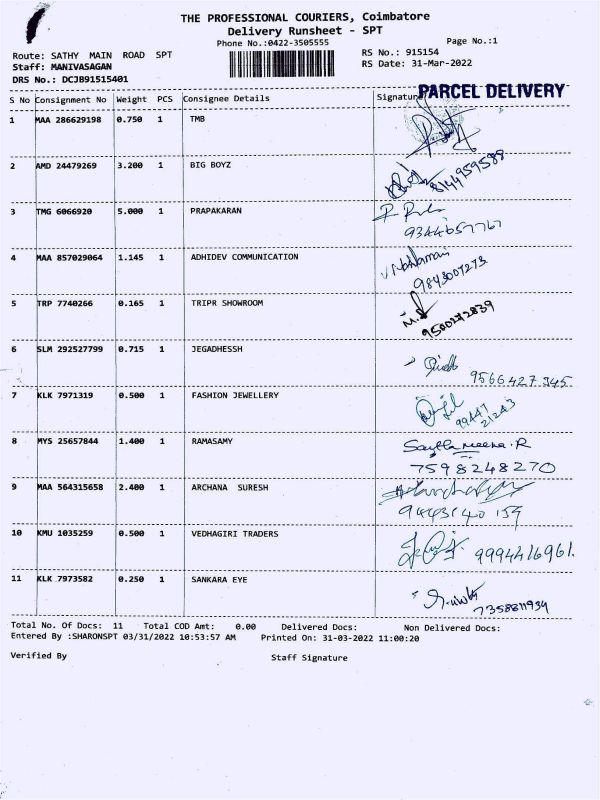 THE PROFESSIONAL COURIERS, Coimbatore
Delivery Runsheet - SPT
Phone No.:0422-3505555
Page No.:1
Route: SATHY MAIN ROAD SPT
RS No.: 915154
Staff: MANIVASAGAN
RS Date: 31-Mar-2022
DRS No.: DCJB91515401
PARCEL DELIVERY
S No Consignment No Weight PCS Consignee Details Signature
1 MAA 286629198 0.750 1 TMB
2 AMD 24479269 3.200 1 BIG BOYZ
8144959588
3 TMG 6066920 5.000 1 PRAPAKARAN
9344657767
4 MAA 857029064 1.145 1 ADHIDEV COMMUNICATION
9843007273
5 TRP 7740266 0.165 1 TRIPR SHOWROOM
9500272839
6 SLM 292527799 0.715 1 JEGADHESSH
9566427345
7 KLK 7971319 0.500 1 FASHION JEWELLERY
99447
21243
8 MYS 25657844 1.400 1 RAMASAMY
7598248270
9 MAA 564315658 2.400 1 ARCHANA SURESH
9443140 159
10 KMU 1035259 0.500 1 VEDHAGIRI TRADERS
9994416961.
11 KLK 7973582 0.250 1 SANKARA EYE
7358811934
Total No. Of Docs: 11 Total COD Amt: 0.00 Delivered Docs: Non Delivered Docs:
Entered By :SHARONSPT 03/31/2022 10:53:57 AM Printed On: 31-03-2022 11:00:20
Verified By Staff Signature